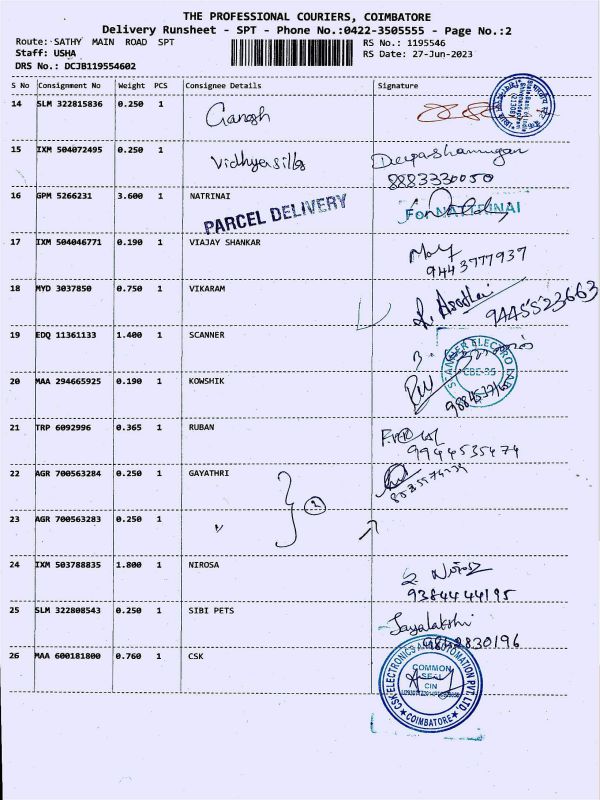 THE PROFESSIONAL COURIERS, COIMBATORE
Delivery Runsheet - SPT - Phone No.:0422-3505555 - Page No.:2
Route: SATHY MAIN ROAD SPT
RS No.: 1195546
Staff: USHA
RS Date: 27-Jun-2023
DRS No.: DCJB119554602
S No Consignment No Weight PCS Consignee Details Signature
14 SLM 322815836 0.250 1 Ganesh
15 IXM 504072495 0.250 1 Vidhyasilks Deepashanmugan
8883330050
16 GPM 5266231 3.600 1 NATRINAI
PARCEL DELIVERY
For NATRINAI
17 IXM 504046771 0.190 1 VIAJAY SHANKAR
9443777937
18 MYD 3037850 0.750 1 VIKARAM
9445523663
19 EDQ 11361133 1.400 1 SCANNER
CBE-35
20 MAA 294665925 0.190 1 KOWSHIK
21 TRP 6092996 0.365 1 RUBAN
9944535474
22 AGR 700563284 0.250 1 GAYATHRI
2
23 AGR 700563283 0.250 1 "
24 IXM 503788835 1.800 1 NIROSA
9384444195
25 SLM 322808543 0.250 1 SIBI PETS Jayalakshi
9842830196
26 MAA 600181800 0.760 1 CSK
CSK ELECTRONICS AND AUTOMATION PVT. LTD.
COMMON
SEAL
CIN
COIMBATORE